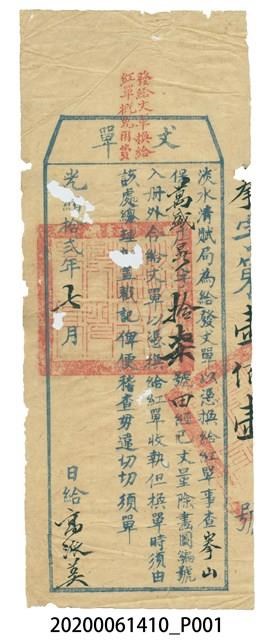 發給丈單換給
紅單概免用費
丈單
淡水清賦局為給發丈單以憑換給紅單事查拳山
保萬盛庄字拾柒號田經已丈量除畫圖編號
入冊外合給丈單以憑換給紅單收執但換單時須由
該處總董蓋戳記俾便稽查毋違切切須單
光緒拾貳年七月
日給高
字第壹佰壹
號
20200061410_P001